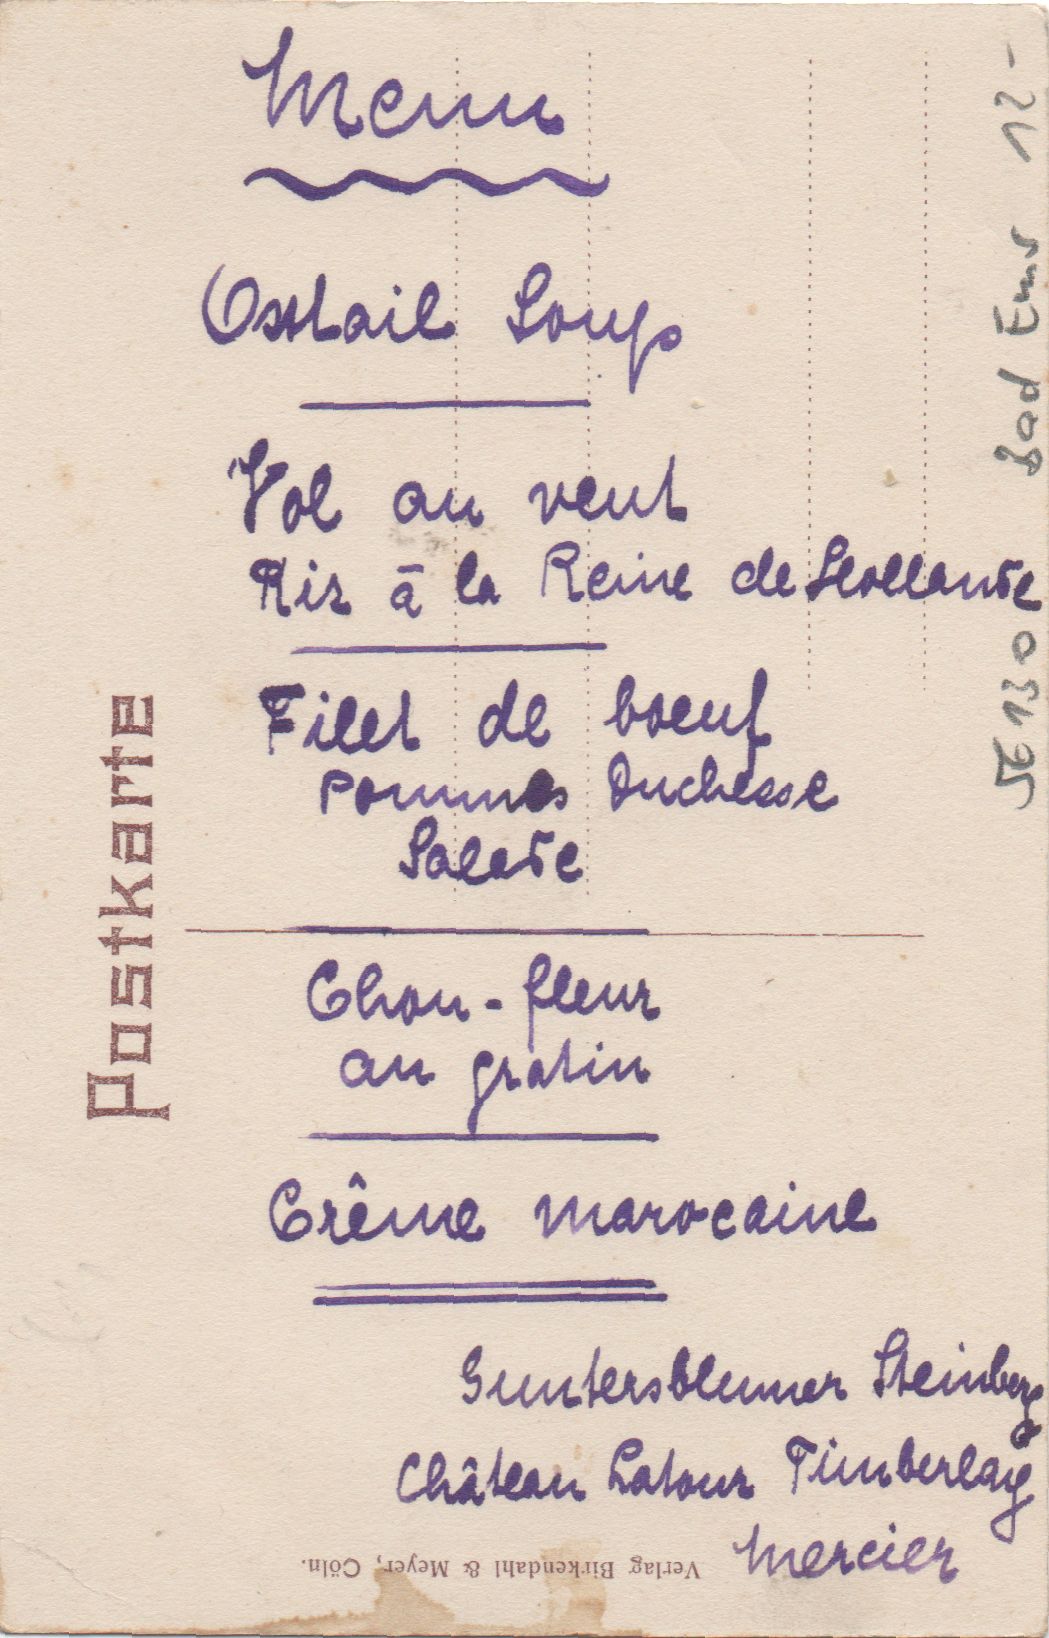 Menu
Oxtail Soup
Vol au vent
Ris à la Reine de Hollande
Filet de boeuf
Pommes Duchesse
Salade
Chou-fleur
au gratin
Crême marocaine
Guntersblumer Steinberg
Château Latour Timberlay
Mercier
Postkarte
Verlag Birkendahl & Meyer, Cöln.
Bad Ems 12-
5E130